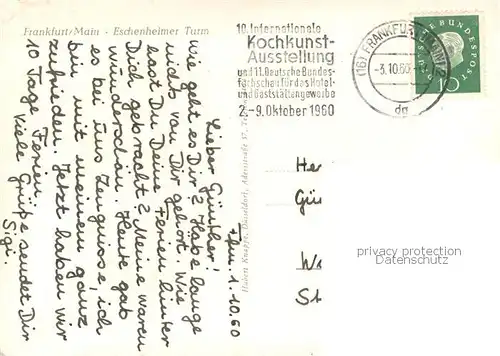 Frankfurt/Main - Eschenheimer Turm
10. Internationale
Kochkunst-
Ausstellung
und 11. Deutsche Bundes-
fachschau für das Hotel-
und Gaststättengewerbe
2.-9. Oktober 1960
(16) FRANKFURT (MAIN) 2
-3.10.60
da
DEUTSCHE BUNDESPOST
10
Ffm. 1.10.60
Lieber Günther!
Wie geht es Dir? Habe lange
nichts von Dir gehört. Wie
hast Du Deine Ferien hinter
Dich gebracht? Meine waren
wunderschön. Heute gab
es bei uns Zeugnisse, ich
bin mit meinem ganz
zufrieden. Jetzt haben wir
10 Tage Ferien.
Viele Grüße sendet Dir
Sigi.
Hubert Knappe, Düsseldorf, Adersstraße
He
Gü
W
St
privacy protection
Datenschutz